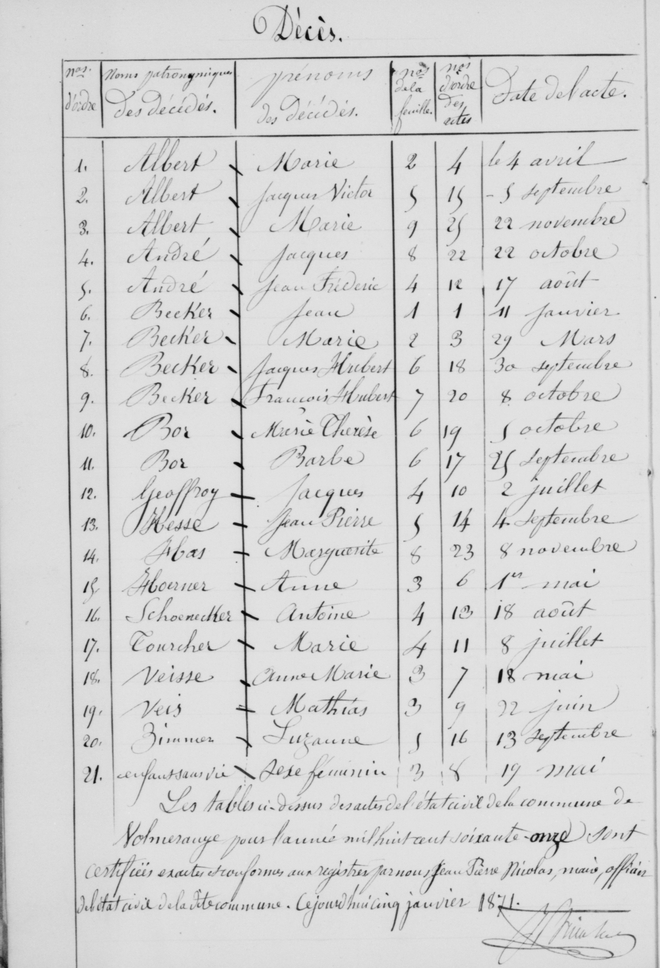 Décès.
Nos. d'ordre | Noms patronymiques des décédés. | prénoms des décédés. | nos de la feuille. | nos d'ordre des actes | Date de l'acte.
1. Albert Marie 2 4 le 4 avril
2. Albert Jacques Victor 5 15 - 5 septembre
3. Albert Marie 9 25 22 novembre
4. André Jacques 8 22 22 octobre
5. André Jean Fréderic 4 12 17 août
6. Becker Jean 1 1 11 janvier
7. Becker Marie 2 3 29 Mars
8. Becker Jacques Hubert 6 18 30 septembre
9. Becker François Hubert 7 20 8 octobre
10. Bor Marie Thérèse 6 19 5 octobre
11. Bor Barbe 6 17 25 septembre
12. Geoffroy Jacques 4 10 2 juillet
13. Hesse Jean Pierre 5 14 4 septembre
14. Has Marguerite 8 23 8 novembre
15. Hoerner Anne 3 6 1er mai
16. Schoenecker Antoine 4 13 18 août
17. Tourcher Marie 4 11 8 juillet
18. Veisse Anne Marie 3 7 18 mai
19. Veis Mathias 3 9 22 juin
20. Zimmer Suzanne 5 16 13 septembre
21. enfant sans vie sexe féminin 3 8 19 mai
Les tables ci-dessus des actes de l'état civil de la commune de
Volmerange pour l'année mil huit cent soixante-onze sont
certifiées exactes et conformes aux registres par nous Jean Pierre Nicolas, maire, officier
de l'état civil de la dite commune. Ce jourd'hui cinq janvier 1871.